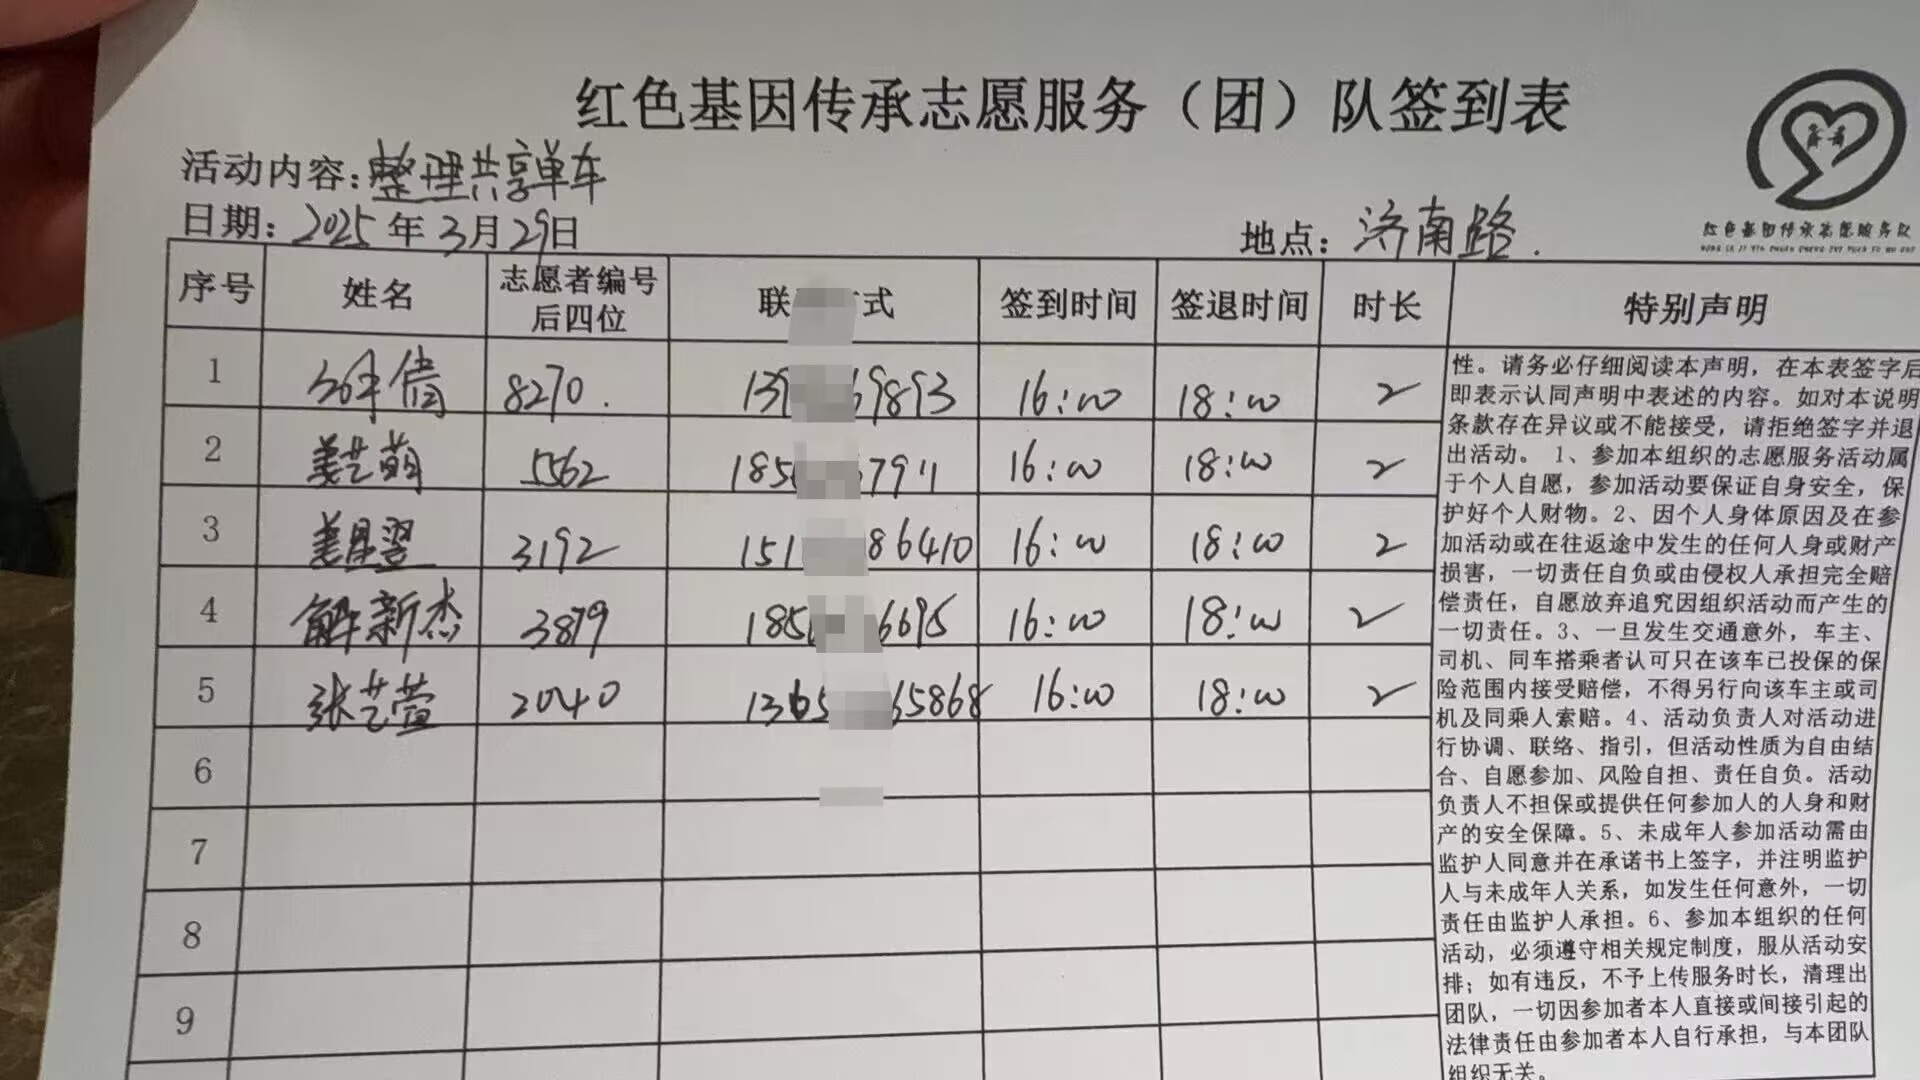 红色基因传承志愿服务（团）队签到表
活动内容：整理共享单车
日期：2025年3月29日
地点：济南路.
红色基因传承志愿服务队
序号 姓名 志愿者编号后四位 联 式 签到时间 签退时间 时长 特别声明
1 倩 8270. 139 69893 16:00 18:00 2
2 姜艺萌 5562 185 7911 16:00 18:00 2
3 姜昱翌 3192 151 86410 16:00 18:00 2
4 解新杰 3879 185 6695 16:00 18:00 2
5 张艺萱 2040 1365 65868 16:00 18:00 2
6
7
8
9
性。请务必仔细阅读本声明，在本表签字后
即表示认同声明中表述的内容。如对本说明
条款存在异议或不能接受，请拒绝签字并退
出活动。 1、参加本组织的志愿服务活动属
于个人自愿，参加活动要保证自身安全，保
护好个人财物。2、因个人身体原因及在参
加活动或在往返途中发生的任何人身或财产
损害，一切责任自负或由侵权人承担完全赔
偿责任，自愿放弃追究因组织活动而产生的
一切责任。3、一旦发生交通意外，车主、
司机、同车搭乘者认可只在该车已投保的保
险范围内接受赔偿，不得另行向该车主或司
机及同乘人索赔。4、活动负责人对活动进
行协调、联络、指引，但活动性质为自由结
合、自愿参加、风险自担、责任自负。活动
负责人不担保或提供任何参加人的人身和财
产的安全保障。5、未成年人参加活动需由
监护人同意并在承诺书上签字，并注明监护
人与未成年人关系，如发生任何意外，一切
责任由监护人承担。6、参加本组织的任何
活动，必须遵守相关规定制度，服从活动安
排；如有违反，不予上传服务时长，清理出
团队，一切因参加者本人直接或间接引起的
法律责任由参加者本人自行承担，与本团队
组织无关。